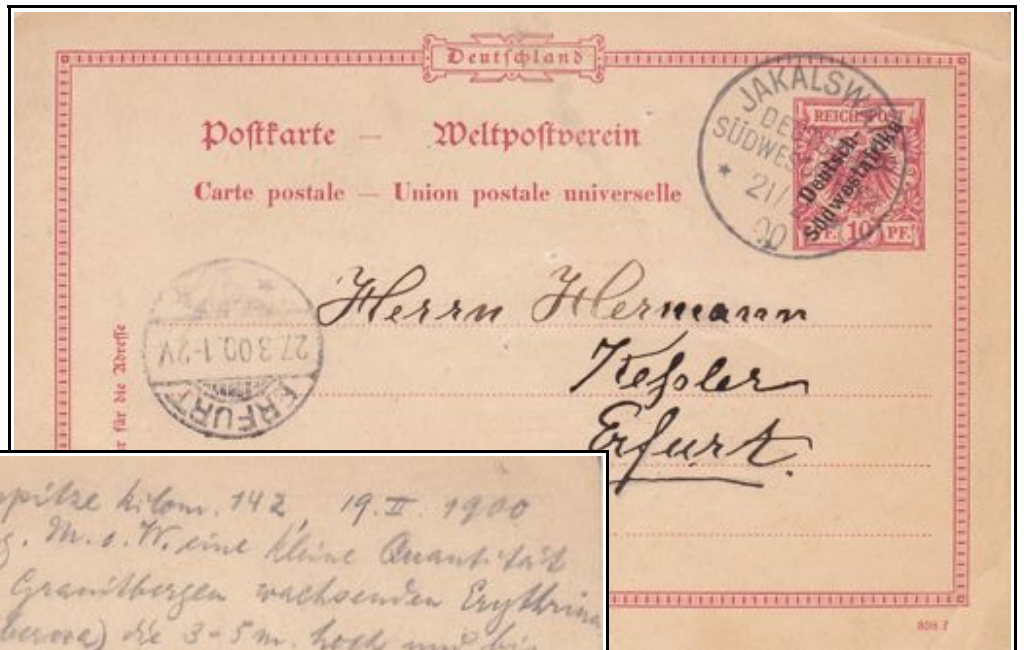 Deutschland
Postkarte — Weltpostverein
Carte postale — Union postale universelle
JAKALSW
SÜDWES
* 21/
00
REICHSPOST
Deutsch-
Südwestafrika
10 PF.
Herrn Hermann
Keßler
Erfurt.
27.3.00.1-2V
ERFURT
für die Adresse
kilom. 142 19. II. 1900
eine kleine Quantität
Granitbergen wachsenden Erythrina
die 3-5 m. hoch und bis